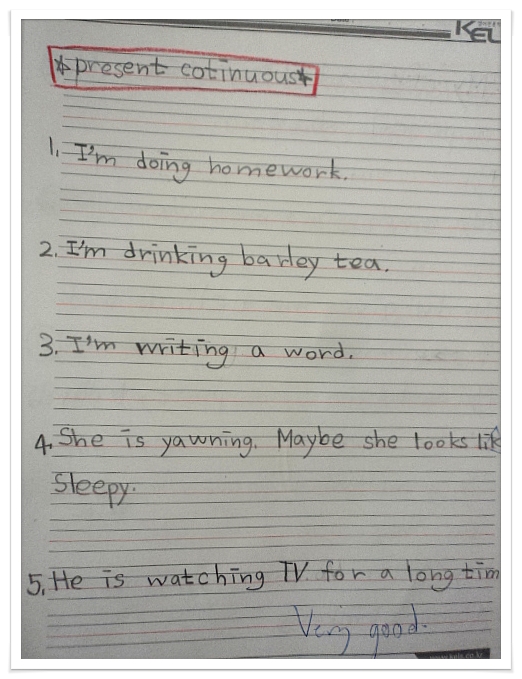 KEL
*present cotinuous*
1. I'm doing homework.
2. I'm drinking barley tea.
3. I'm writing a word.
4. She is yawning. Maybe she looks lik
Sleepy.
5. He is watching TV for a long tim
Very good.